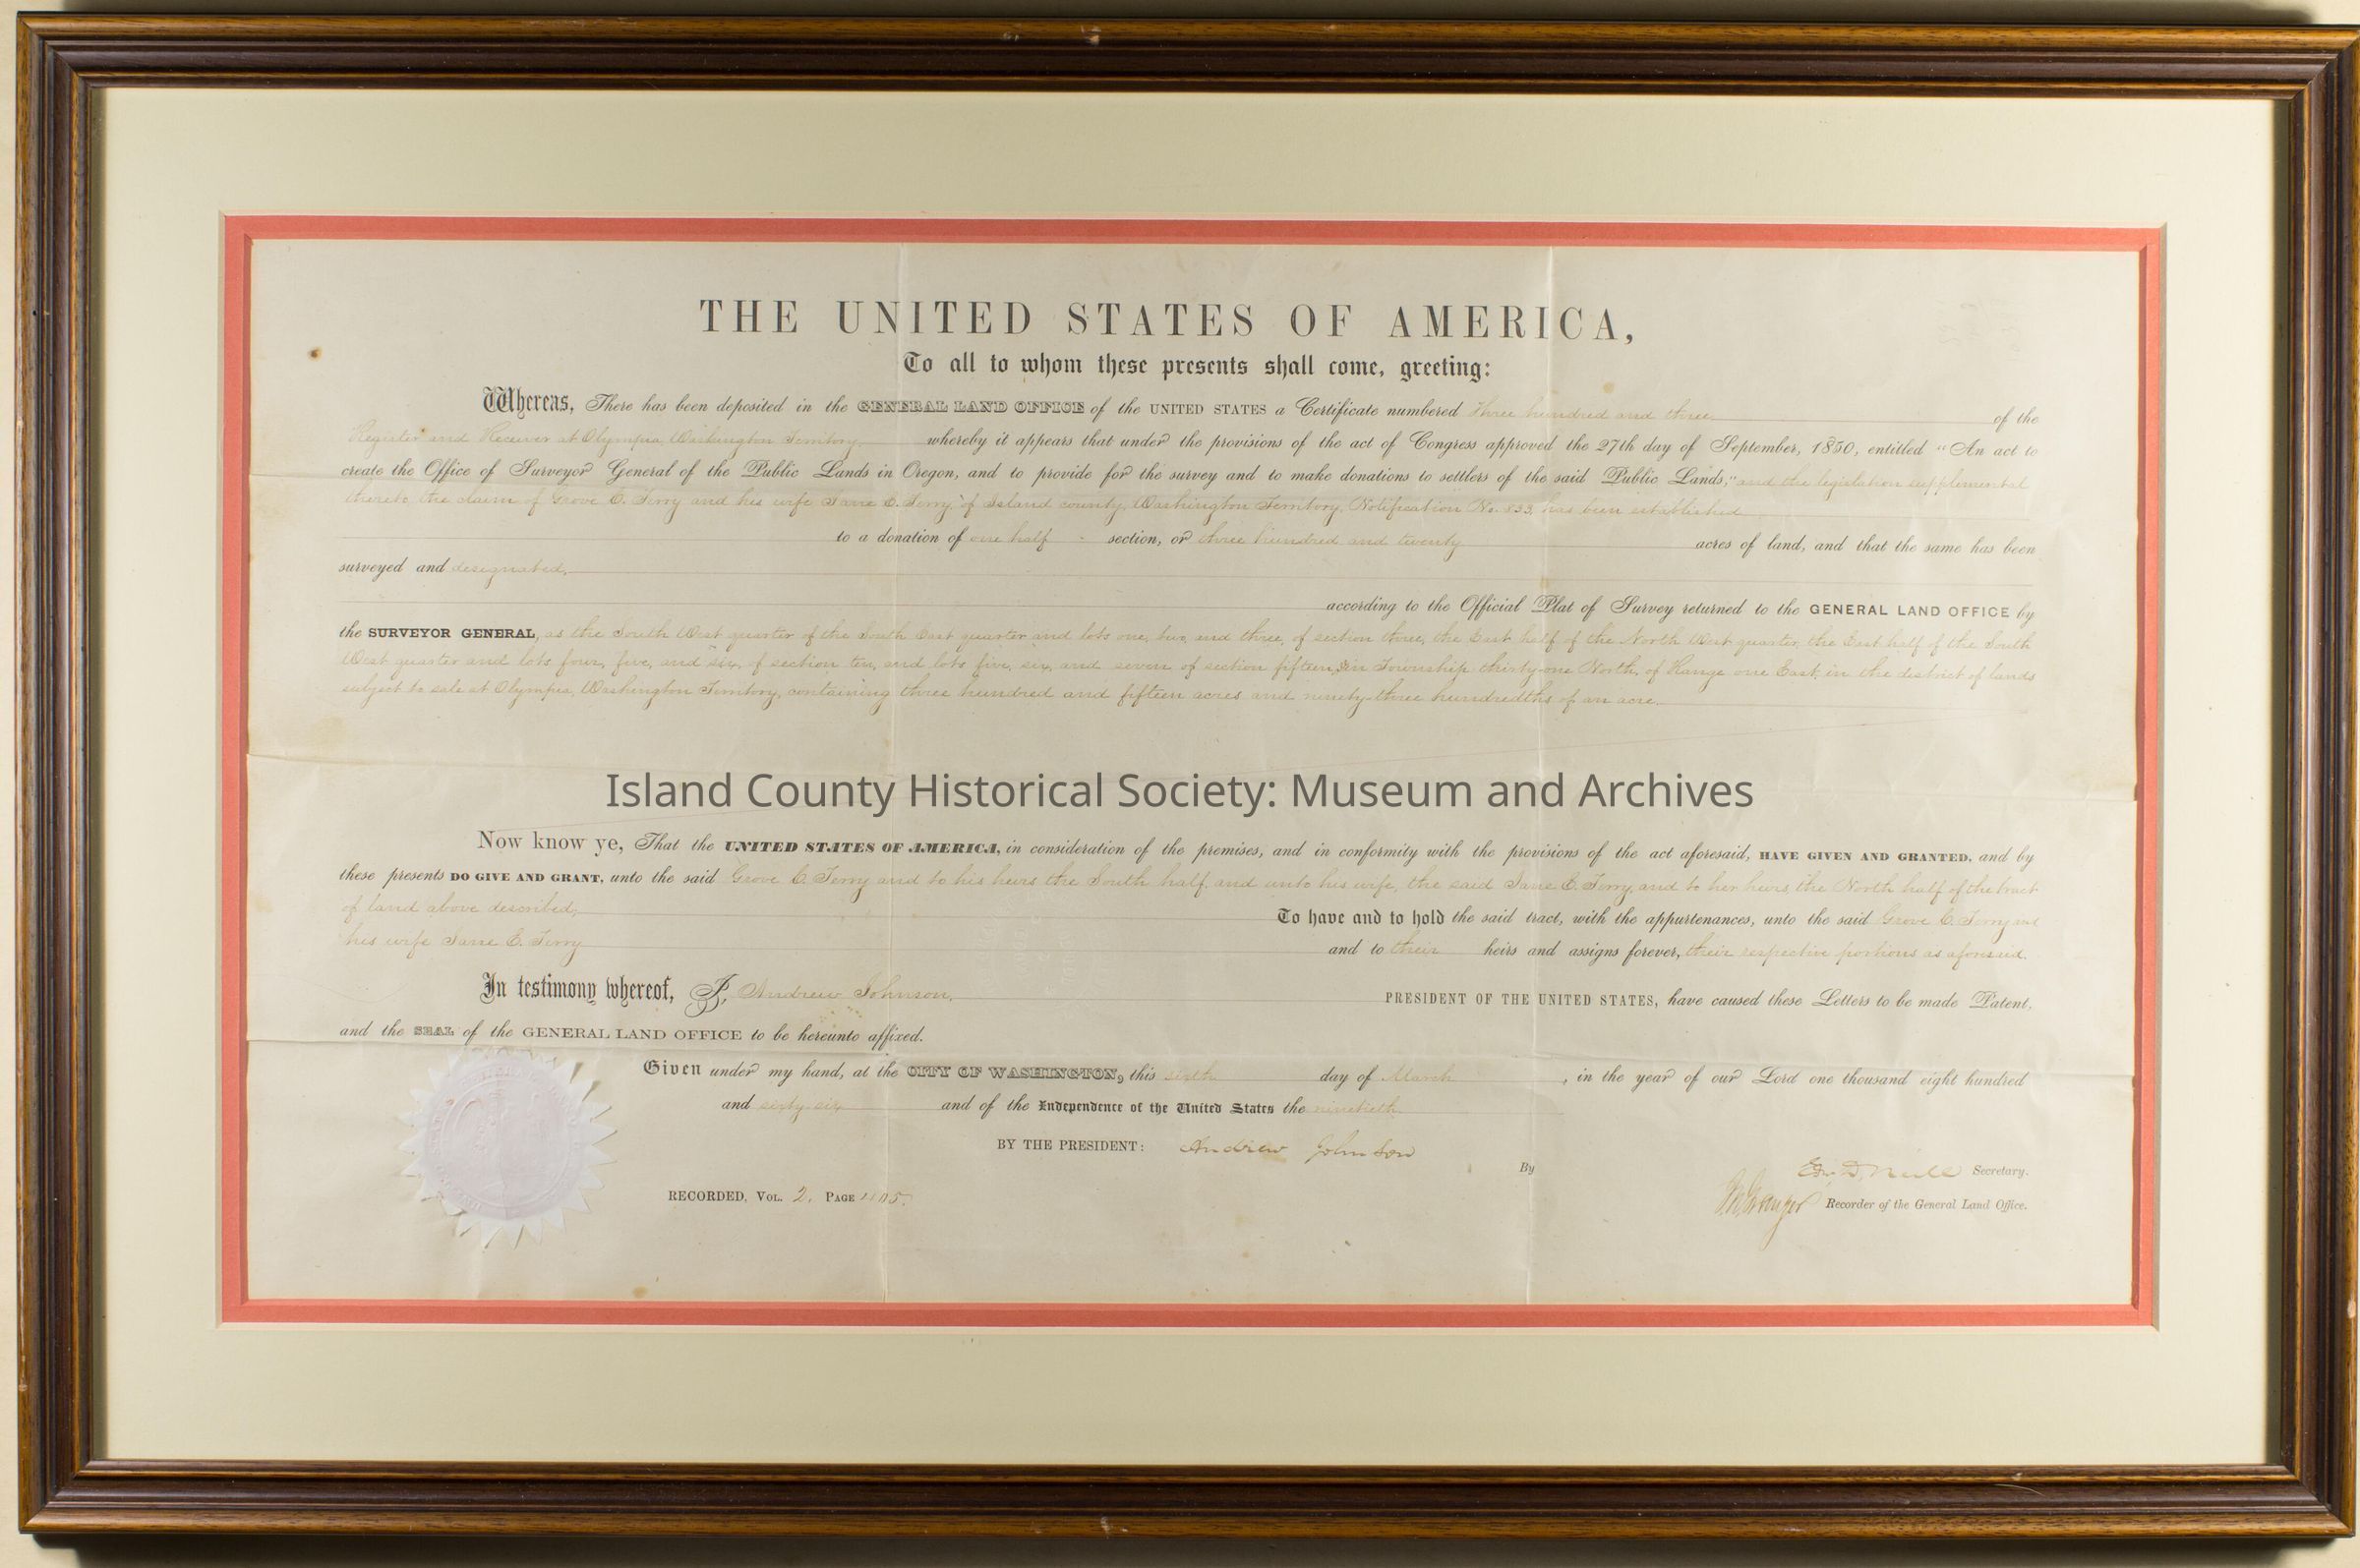 THE UNITED STATES OF AMERICA,
To all to whom these presents shall come, greeting:
Whereas, There has been deposited in the GENERAL LAND OFFICE of the UNITED STATES a Certificate numbered Three hundred and three of the
Register and Receiver at Olympia, Washington Territory, whereby it appears that under the provisions of the act of Congress approved the 27th day of September, 1850, entitled "An act to
create the Office of Surveyor General of the Public Lands in Oregon, and to provide for the survey and to make donations to settlers of the said Public Lands," and the legislation supplemental
thereto, the claim of Grove C. Terry and his wife Jane E. Terry, of Island county, Washington Territory, Notification No. 833, has been established
to a donation of one half section, or three hundred and twenty acres of land, and that the same has been
surveyed and designated,
according to the Official Plat of Survey returned to the GENERAL LAND OFFICE by
the SURVEYOR GENERAL, as the South West quarter of the South East quarter and lots one, two, and three, of section three, the East half of the North West quarter, the East half of the South
West quarter and lots four, five, and six, of section ten, and lots five, six, and seven of section fifteen, in Township thirty-one North, of Range one East, in the district of lands
subject to sale at Olympia, Washington Territory, containing three hundred and fifteen acres and ninety-three hundredths of an acre.
Island County Historical Society: Museum and Archives
Now know ye, That the UNITED STATES OF AMERICA, in consideration of the premises, and in conformity with the provisions of the act aforesaid, HAVE GIVEN AND GRANTED, and by
these presents DO GIVE AND GRANT, unto the said Grove C. Terry and to his heirs the South half, and unto his wife, the said Jane E. Terry, and to her heirs the North half of the tract
of land above described;
To have and to hold the said tract, with the appurtenances, unto the said Grove C. Terry and
his wife Jane E. Terry and to their heirs and assigns forever, their respective portions as aforesaid.
In testimony whereof, I, Andrew Johnson, PRESIDENT OF THE UNITED STATES, have caused these Letters to be made Patent,
and the SEAL of the GENERAL LAND OFFICE to be hereunto affixed.
Given under my hand, at the CITY OF WASHINGTON, this sixth day of March, in the year of our Lord one thousand eight hundred
and sixty-six and of the Independence of the United States the ninetieth
BY THE PRESIDENT: Andrew Johnson
By Edw. D. Neill Secretary.
RECORDED, VOL. 2, PAGE
Recorder of the General Land Office.